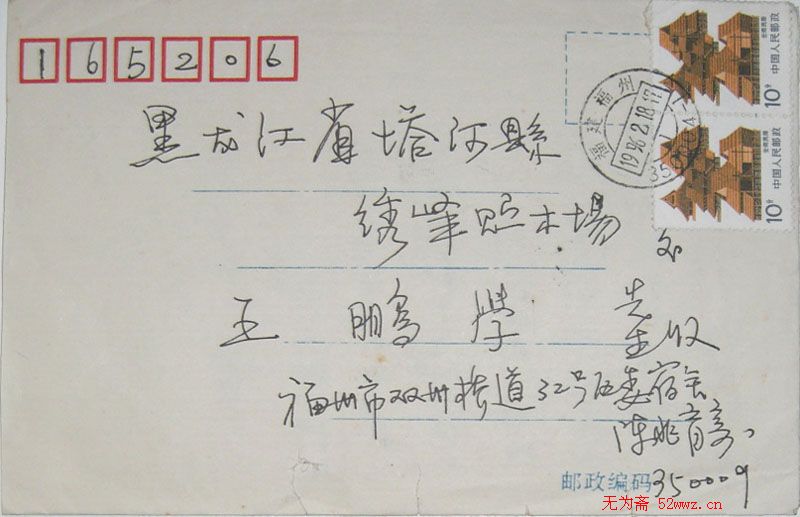 165206
黑龙江省塔河縣
绣峰贮木場 交
王鹏學 先生 收
福州市双洲楼道32号区委宿舍
陈兆育寄
邮政编码350009
福建福州
1996.2.18.17
中国人民邮政
10分
中国人民邮政
10分
无为斋 52wwz.cn